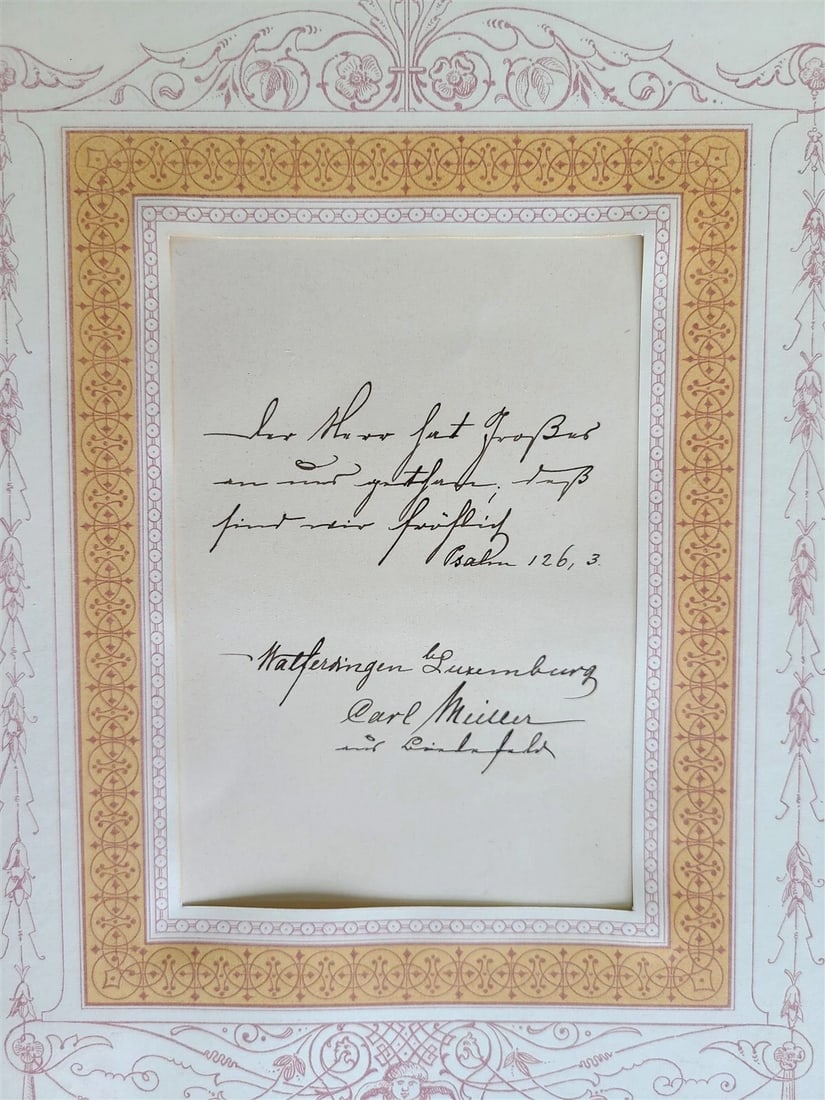 Der Herr hat Großes
an uns gethan; deß
sind wir fröhlich
Psalm 126, 3.
Walferdingen b/Luxemburg
Carl Müller
aus Bielefeld